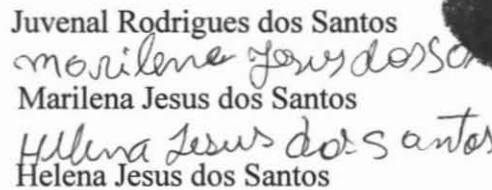 Juvenal Rodrigues dos Santos
Marilena Jesus dos San
Marilena Jesus dos Santos
Helena Jesus dos Santos
Helena Jesus dos Santos